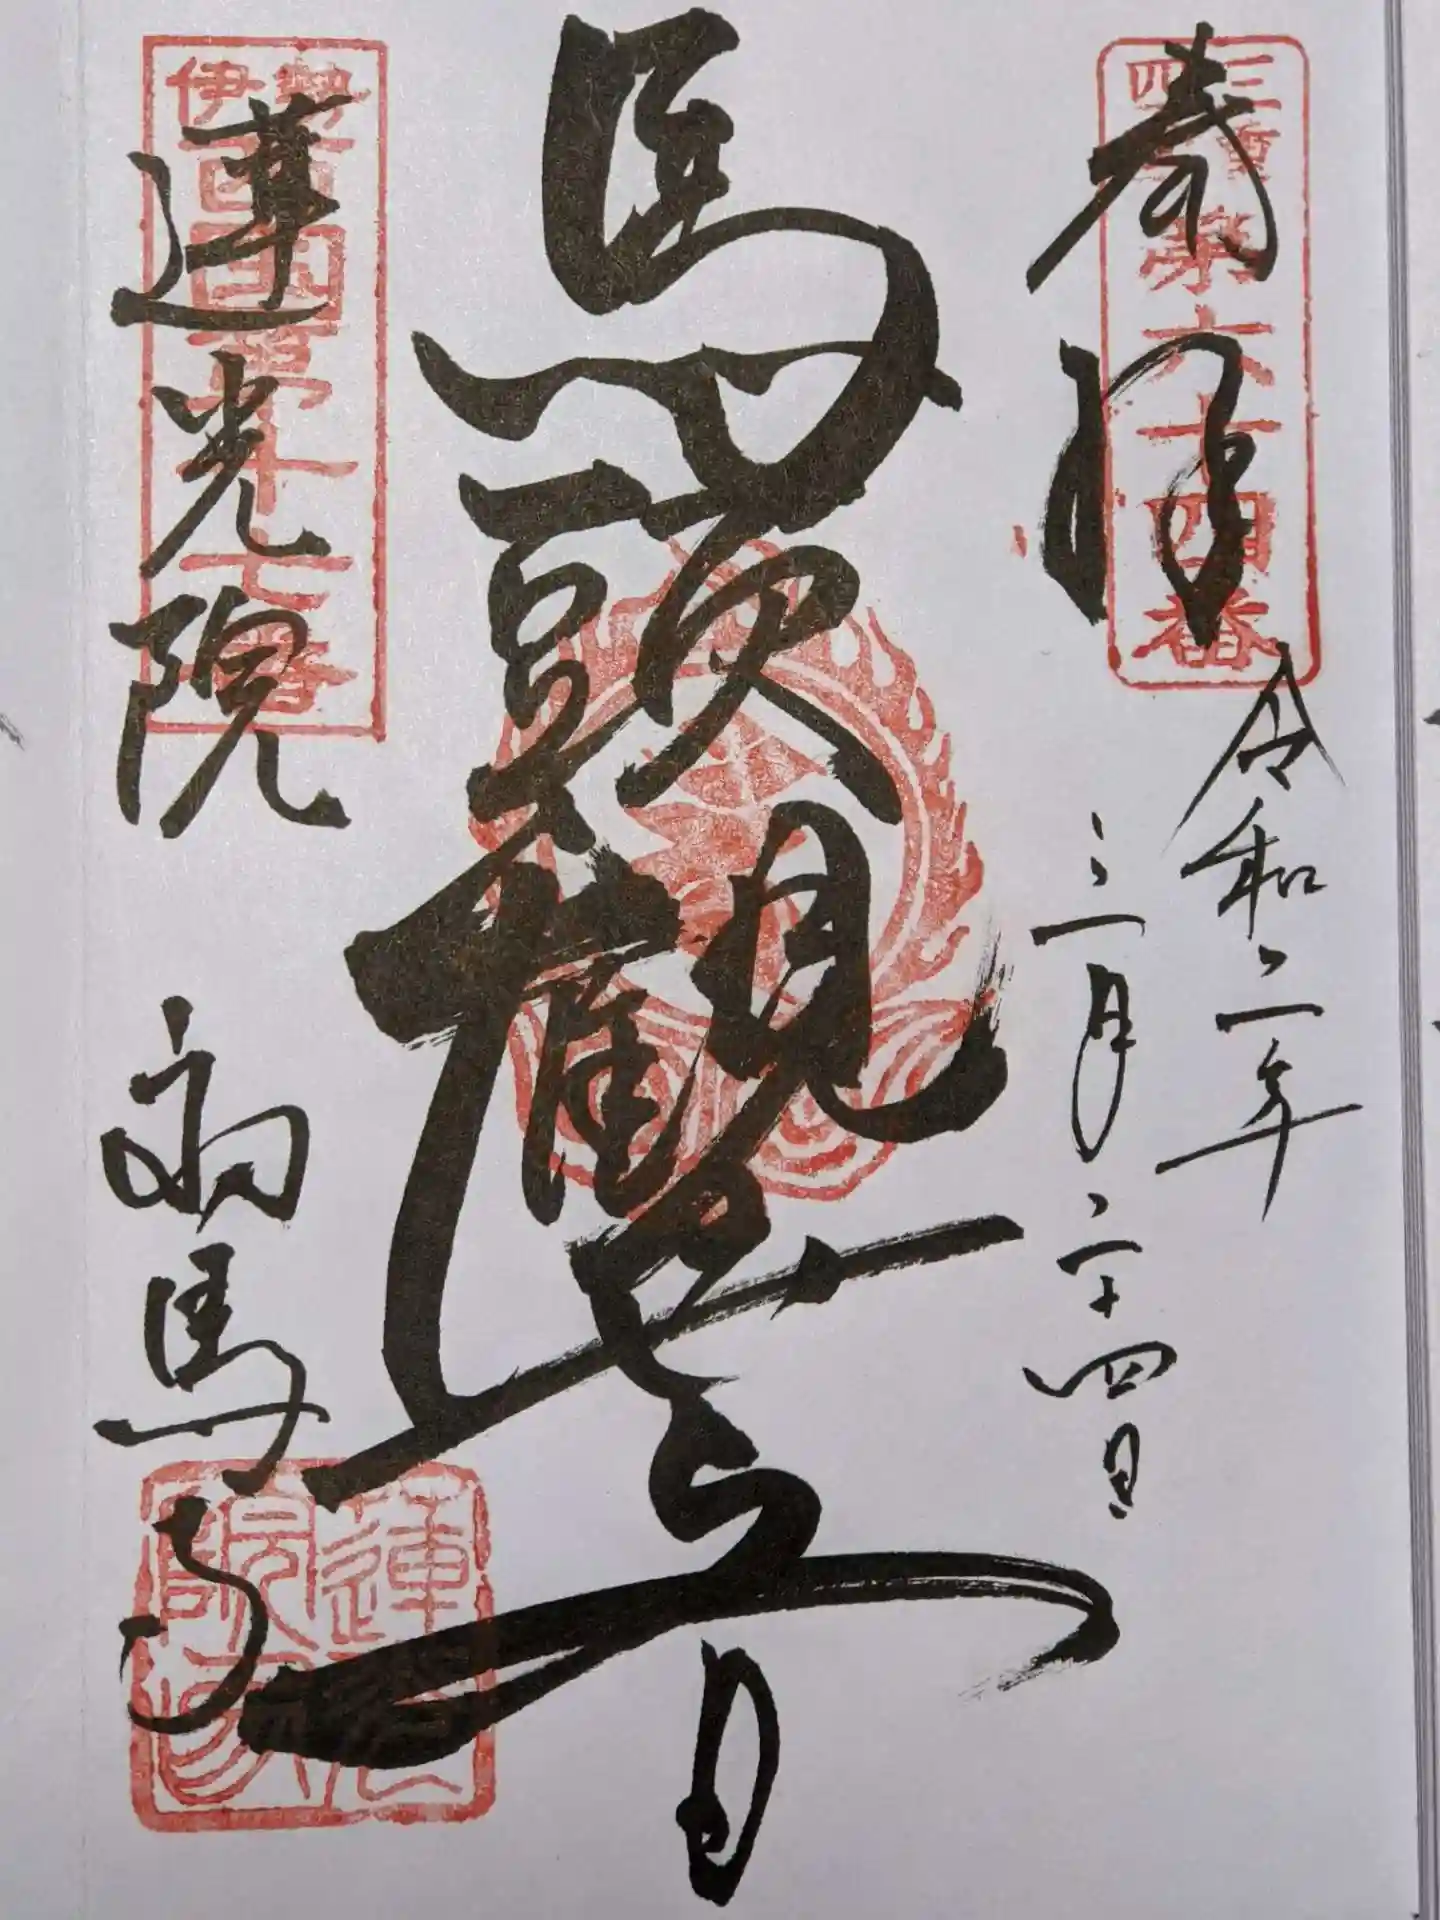 奉拝
三重四国
第六十四番
令和二年
三月二十四日
馬頭観世音
伊勢西国第十七番
蓮光院
初馬寺
蓮光院